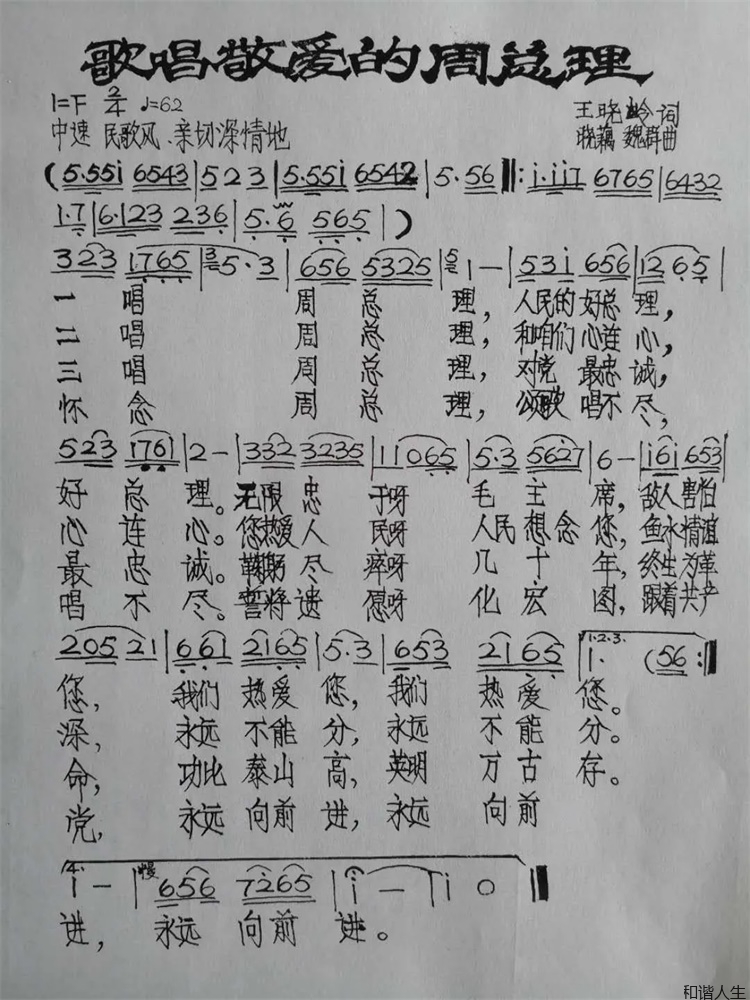 歌唱敬爱的周总理
1=F 2/4 ♩=62
王晓岭词
中速 民歌风、亲切深情地
晓藕 魏群曲
(5·55i 6543|523|5·55i 6542|5·56‖:i·ii7 6765|6432
1·7|6·123 236|5·6 565|)
323 1765|3 5·3|656 5325|5 1—|53i 656|12 65|
一 唱 周 总 理，人民的 好总理，
二 唱 周 总 理，和咱们 心连心，
三 唱 周 总 理，对党 最忠诚，
怀 念 周 总 理，颂歌 唱不尽，
523 1761|2—|332 3235|11065|5·3 5627|6—|i6i 653|
好 总 理。无限 忠 于呀 毛 主 席，敌人害怕
心 连 心。您热爱 人 民呀 人民 想念 您，鱼水情谊
最 忠 诚。鞠躬 尽 瘁呀 几 十 年，终生为革
唱 不 尽。誓将 遗 愿呀 化 宏 图，跟着共产
205 21|661 2165|5·3|653 2165|1.2.3. 1· (56:‖
您，我们 热爱 您，我们 热爱 您。
深，永远 不能 分，永远 不能 分。
命，功比 泰山 高，英明 万古 存。
党，永远 向前 进，永远 向前
4. i—|慢 656 7265|i—|i 0‖
进，永远 向前 进。
和谐人生